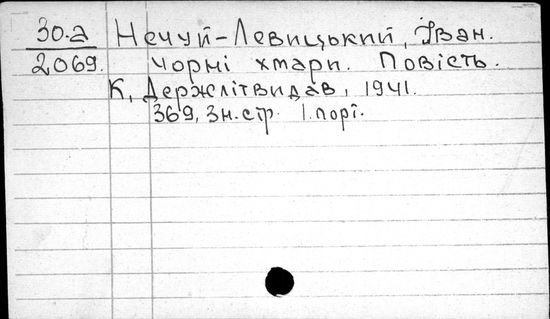 30.а Нечуй-Левицький, Іван.
2069. Чорні хмари. Повість.
К, Держлітвидав, 1941.
369, 3н.стр. 1.порт.